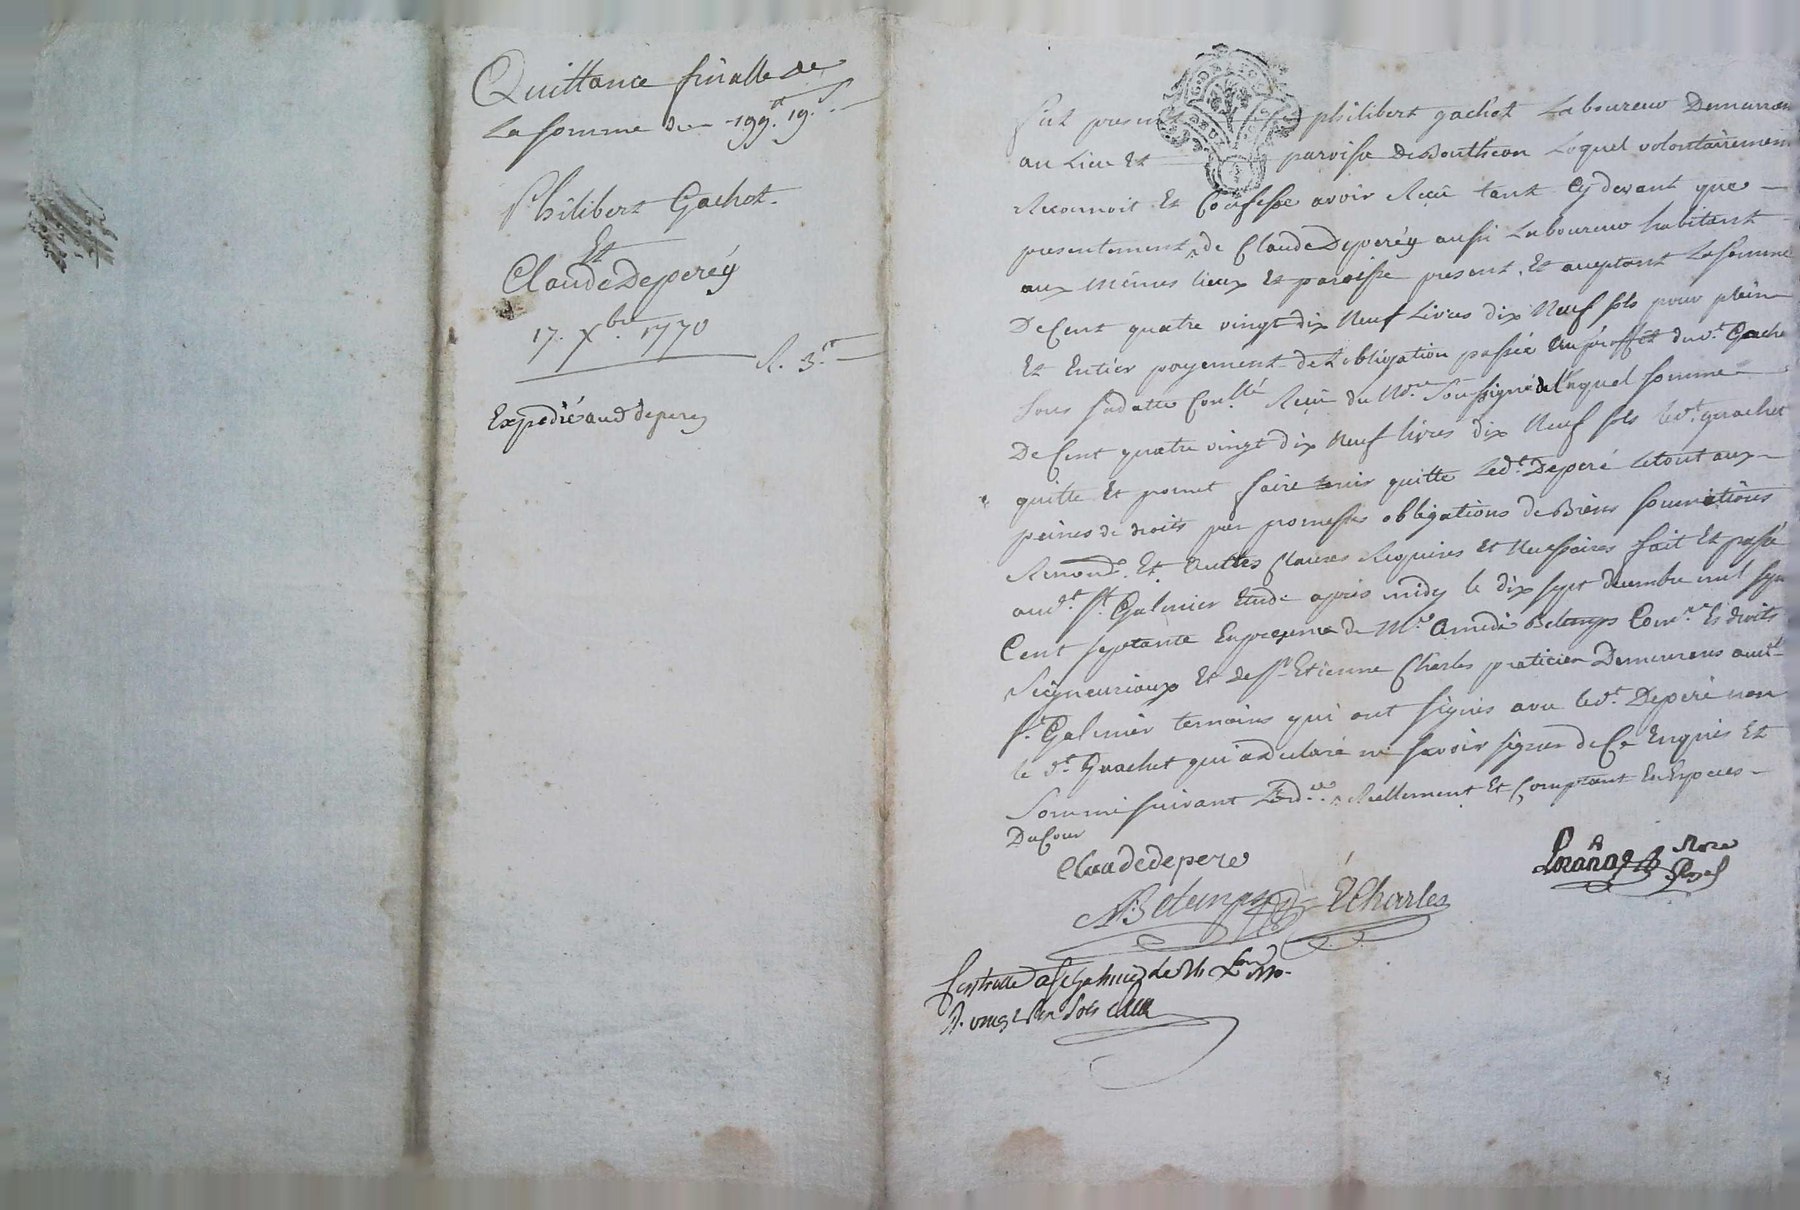 Quittance finalle de
La somme de 199.lt 19.s
Philibert Gachot.
Et
Claude Deperéy
17. Xbre. 1770
R. 3.lt
Expedié aud deperey
fut present philibert gachot Laboureur Demurant
au Lieu Et paroisse De Bouthéon Lequel volontairement
Reconnoit Et Confesse avoir Reçu tant Cydevant que
presentement ^ de Claude Deperéy aussi Laboureur habitant
aux mêmes lieux Et paroisse present, Et aceptant La somme
De Cent quatre vingt dix Neuf Livres dix Neuf sols pour plein
Et Entier payement de L'obligation passée au proffit dud.t Gache
sous sa datte Con.llé Reçu du No.re soussigné de laquel somme
De Cent quatre vingt dix Neuf livres dix Neuf sols led.t gachet
quitte Et promet faire tenir quitte Led.t Deperé Le tout aux
peines de droits par promesses obligations de Biens soumitions
Renonc. Et Autres Clauses Requises Et Necessaires fait Et passé
aud.t S.t Galmier Etude après midy le dix sept decembre mil sept
Cent septante En presence de M.re Amedé Betemps Com.re Es droits
Seigneuriaux Et de S.r Etienne Charles praticien Demeurans aud.t
S.t Galmier temoins qui ont signés avec led.t Deperé non
le d.t Gachet qui a declaré ne savoir signer de Ce Enquis Et
Sommé suivant L'ord.ce ^ Reellement Et Comptant En Especes
Du Cour
Claude depere
ABetemps ECharles
No.re
Royal
Controllé a St Galmier le
R. vingt six sols